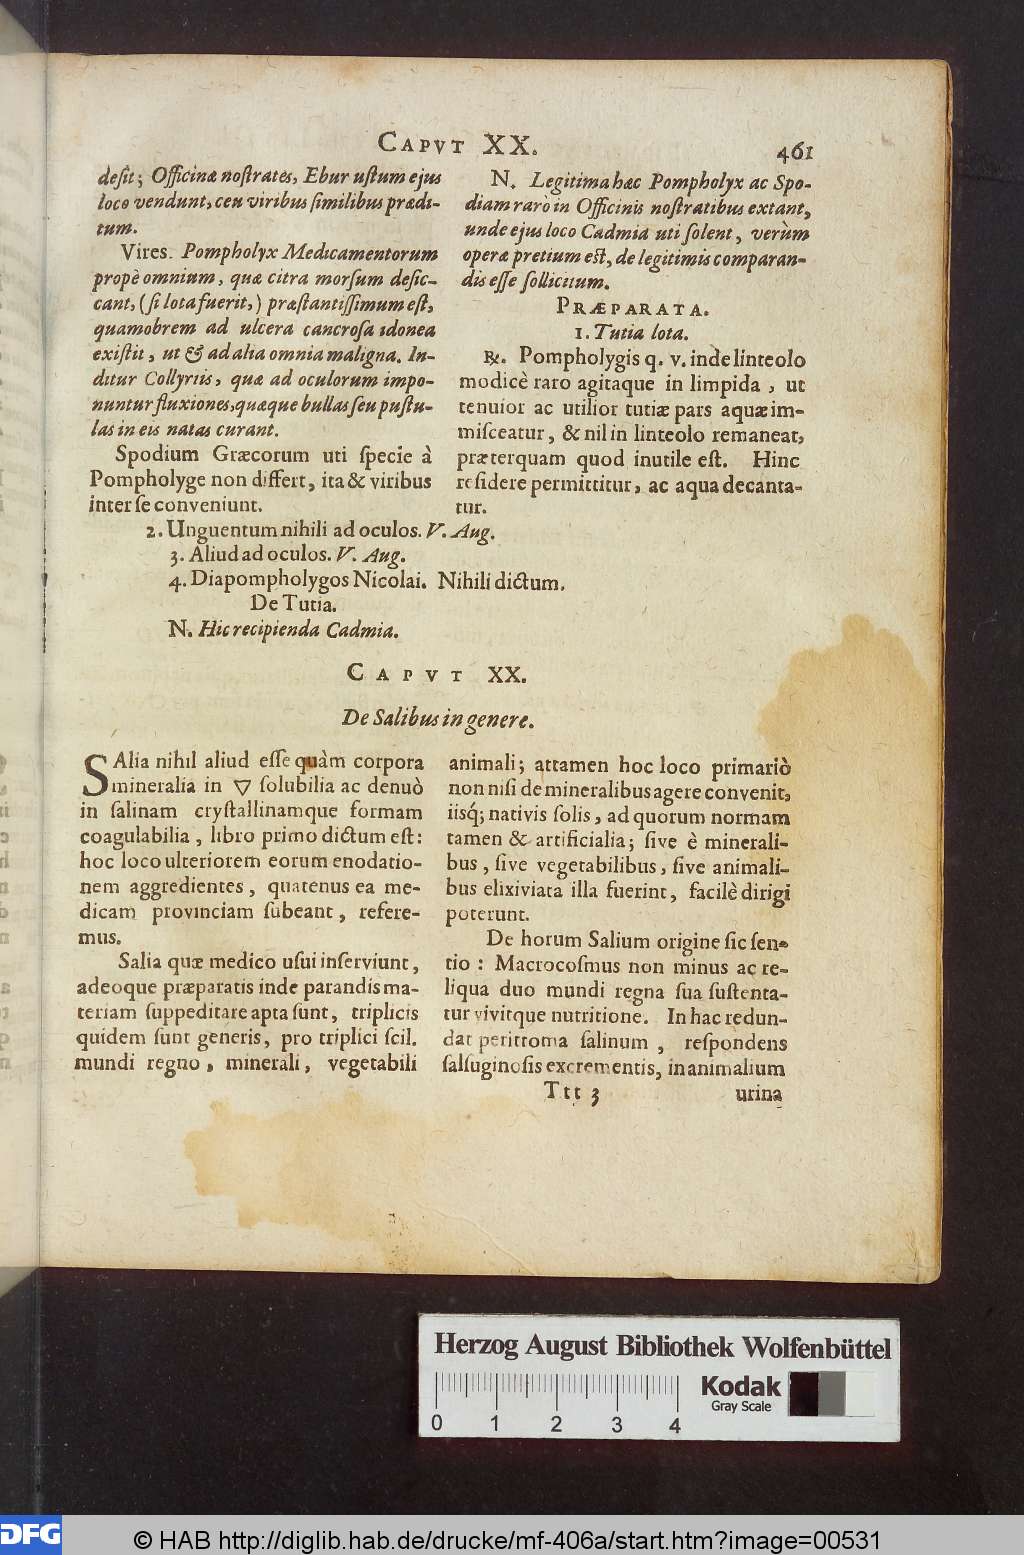 CAPVT XX.
461
desit; Officinæ nostrates, Ebur ustum ejus
loco vendunt, ceu viribus similibus prædi-
tum.
Vires. Pompholyx Medicamentorum
propè omnium, quæ citra morsum desic-
cant, (si lota fuerit,) præstantissimum est,
quamobrem ad ulcera cancrosa idonea
existit, ut & ad alia omnia maligna. In-
ditur Collyriis, quæ ad oculorum impo-
nuntur fluxiones, quæque bullas seu pustu-
las in eis natas curant.
Spodium Græcorum uti specie à
Pompholyge non differt, ita & viribus
inter se conveniunt.
N. Legitima hæc Pompholyx ac Spo-
dium rarò in Officinis nostratibus extant,
unde ejus loco Cadmia uti solent, verùm
operæ pretium est, de legitimis comparan-
dis esse sollicitum.
PRÆPARATA.
1. Tutia lota.
℞. Pompholygis q. v. inde linteolo
modicè raro agitaque in limpida, ut
tenuior ac utilior tutiæ pars aquæ im-
misceatur, & nil in linteolo remaneat,
præterquam quod inutile est. Hinc
residere permittitur, ac aqua decanta-
tur.
2. Unguentum nihili ad oculos. V. Aug.
3. Aliud ad oculos. V. Aug.
4. Diapompholygos Nicolai. Nihili dictum.
De Tutia.
N. Hic recipienda Cadmia.
CAPVT XX.
De Salibus in genere.
SAlia nihil aliud esse quàm corpora
mineralia in 🜄 solubilia ac denuò
in salinam crystallinamque formam
coagulabilia, libro primo dictum est:
hoc loco ulteriorem eorum enodatio-
nem aggredientes, quatenus ea me-
dicam provinciam subeant, refere-
mus.
Salia quæ medico usui inserviunt,
adeoque præparatis inde parandis ma-
teriam suppeditare apta sunt, triplicis
quidem sunt generis, pro triplici scil.
mundi regno, minerali, vegetabili
animali; attamen hoc loco primariò
non nisi de mineralibus agere convenit,
iisq́; nativis solis, ad quorum normam
tamen & artificialia; sive è minerali-
bus, sive vegetabilibus, sive animali-
bus elixiviata illa fuerint, facilè dirigi
poterunt.
De horum Salium origine sic sen-
tio: Macrocosmus non minus ac re-
liqua duo mundi regna sua sustenta-
tur vivitque nutritione. In hac redun-
dat perittoma salinum, respondens
salsuginosis excrementis, in animalium
Ttt 3
urina
Herzog August Bibliothek Wolfenbüttel
Kodak
Gray Scale
0 1 2 3 4
DFG
© HAB http://diglib.hab.de/drucke/mf-406a/start.htm?image=00531